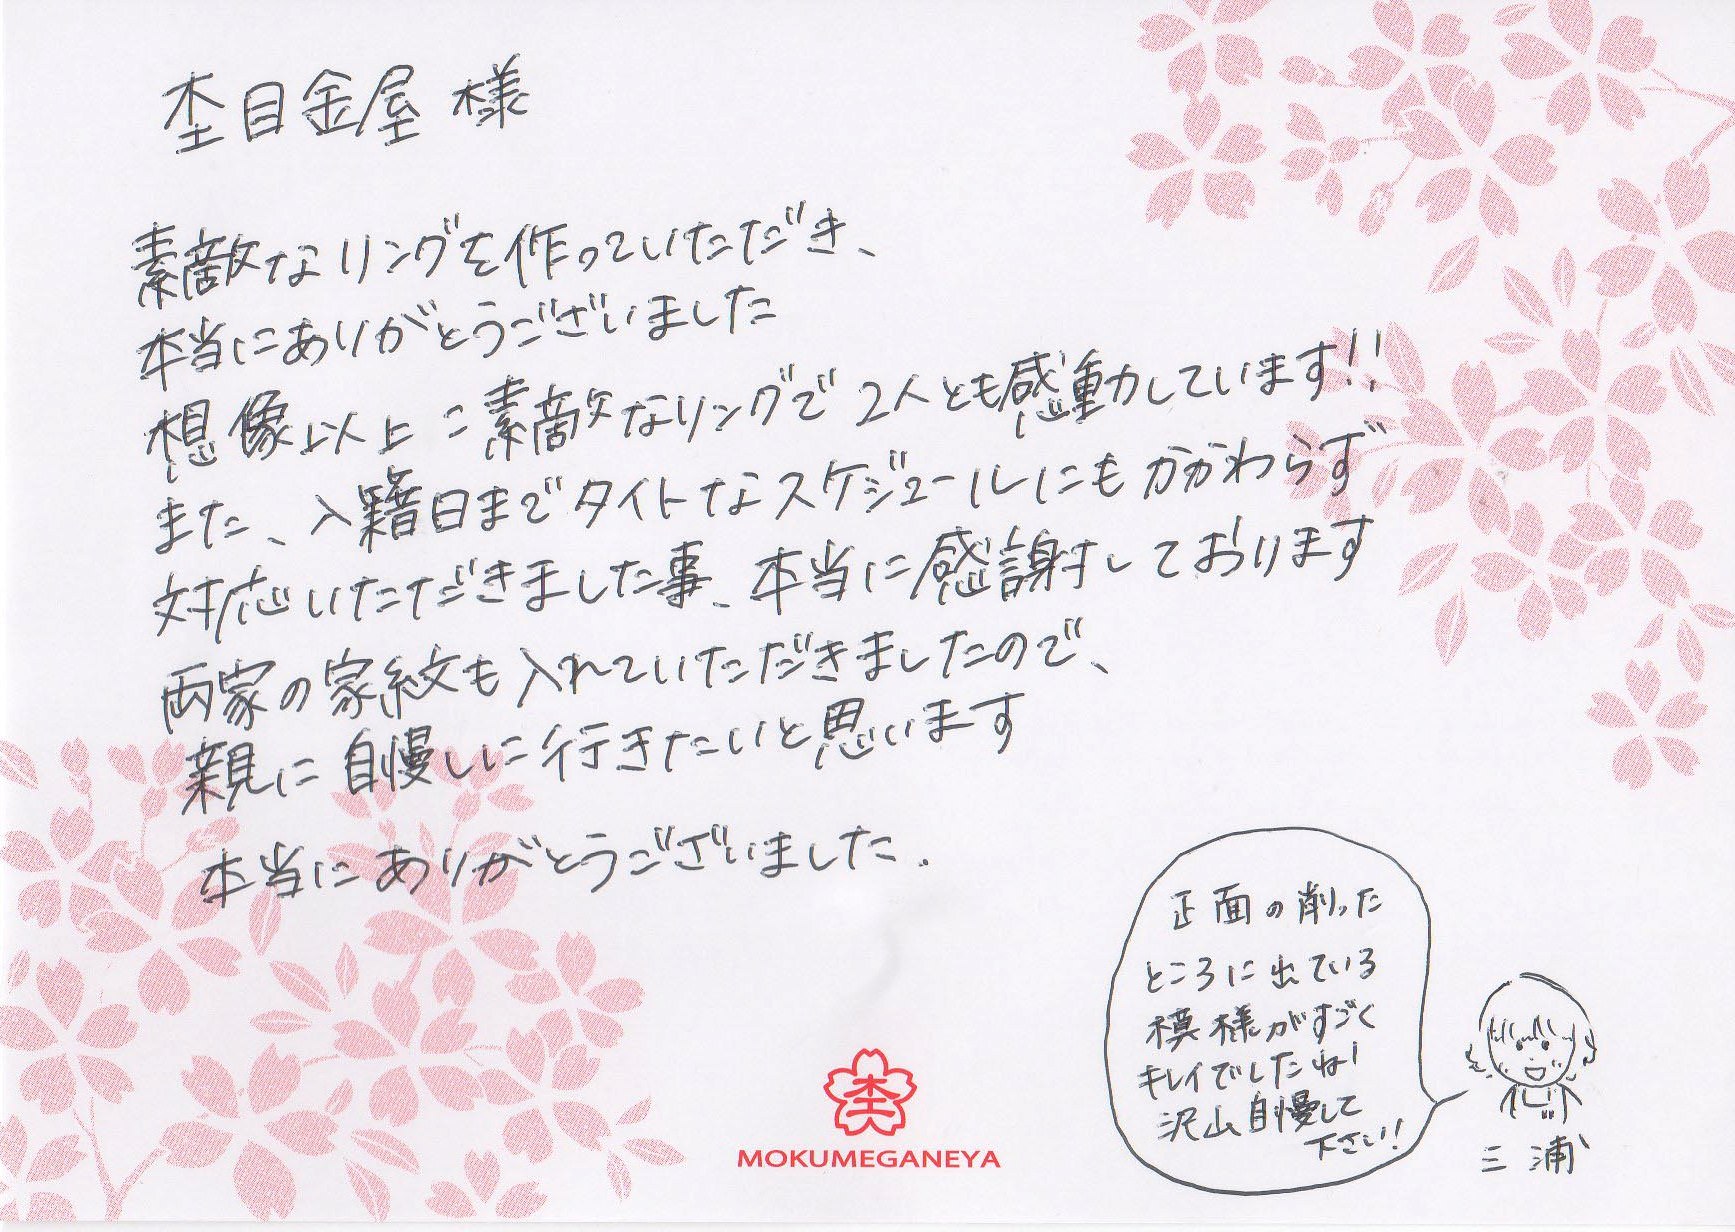 杢目金屋 様
素敵なリングを作っていただき、
本当にありがとうございました
想像以上に素敵なリングで2人とも感動しています!!
また、入籍日までタイトなスケジュールにもかかわらず
対応いただきました事、本当に感謝しております
両家の家紋も入れていただきましたので、
親に自慢しに行きたいと思います
本当にありがとうございました.
正面の削った
ところに出ている
模様がすごく
キレイでしたね!
沢山自慢して
下さい!
三浦
杢
MOKUMEGANEYA